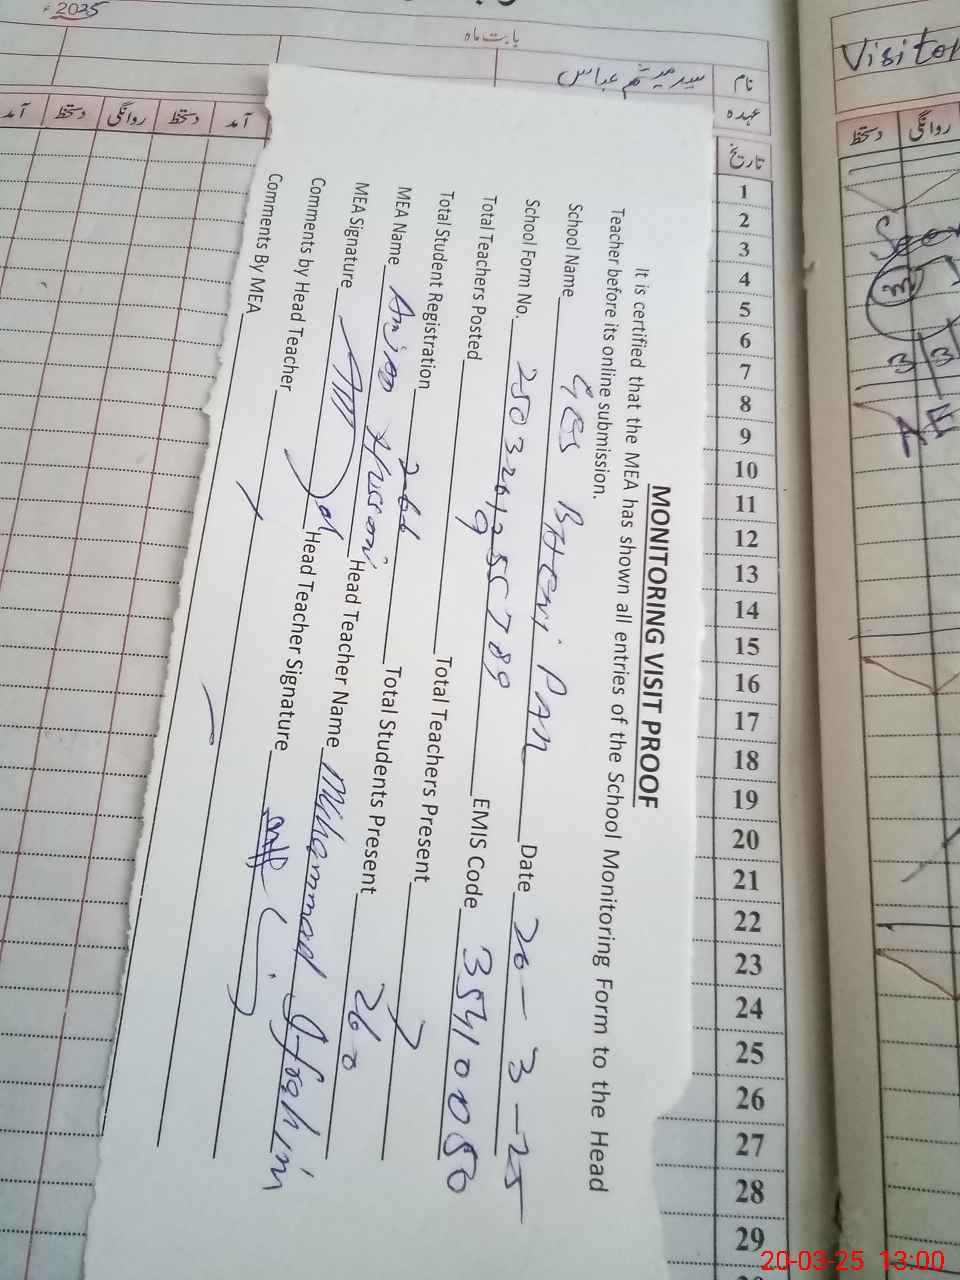 MONITORING VISIT PROOF
It is certified that the MEA has shown all entries of the School Monitoring Form to the Head
Teacher before its online submission.
School Name GES BHENI PAN Date 20-3-25
School Form No. EMIS Code 35410050
Total Teachers Posted 9 Total Teachers Present 7
Total Student Registration 266 Total Students Present 260
MEA Name Head Teacher Name Muhammad
MEA Signature Head Teacher Signature
Comments by Head Teacher
Comments By MEA
2025
بابت ماہ
نام سید میثم عباس
عہدہ
تاریخ
آمد دستخط روانگی دستخط آمد
1
2
3
4
5
6
7
8
9
10
11
12
13
14
15
16
17
18
19
20
21
22
23
24
25
26
27
28
29
Visitor
روانگی دستخط
20-03-25 13:00